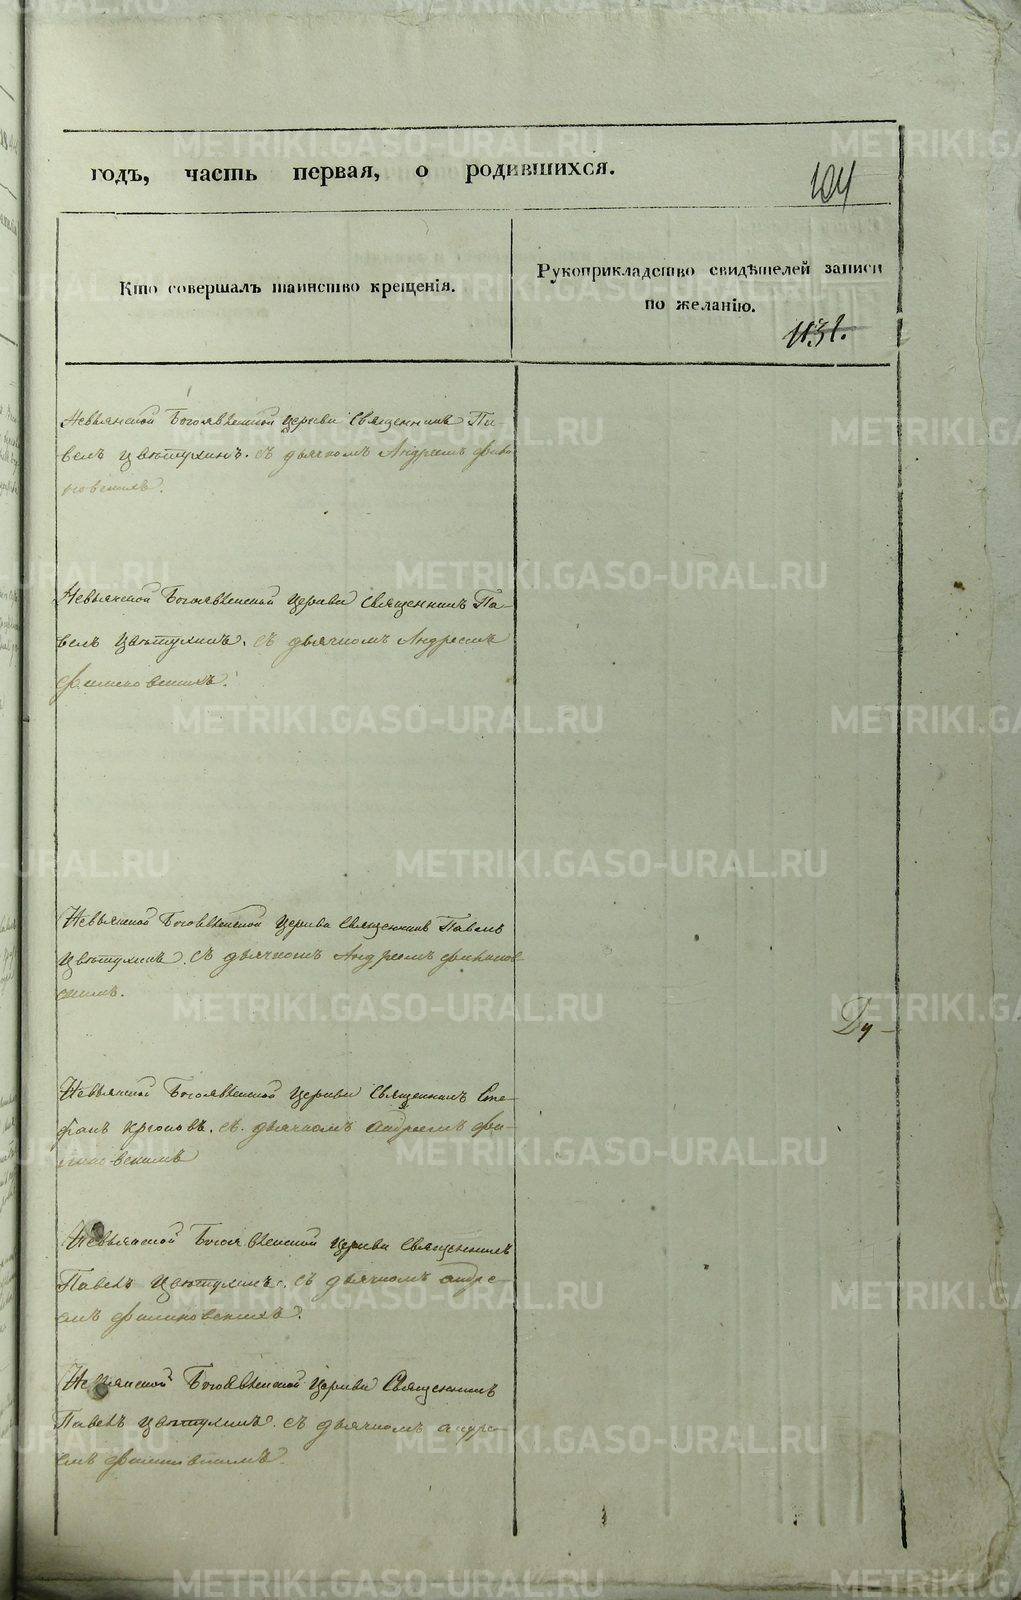 годъ, часть первая, о родившихся.
104
Кто совершалъ таинство крещенія.
Рукоприкладство свидѣтелей записи
по желанію.
Невьянской Богоявленской церкви Священникъ Па-
велъ Цвѣтухинъ. съ дьячкомъ Андреемъ
Невьянской Богоявленской церкви Священникъ Па-
велъ Цвѣтухинъ. съ дьячкомъ Андреемъ
Невьянской Богоявленской церкви Священникъ Павелъ
Цвѣтухинъ. съ дьячкомъ Андреемъ
Невьянской Богоявленской церкви Священникъ Сте-
фанъ Крюковъ. съ дьячкомъ андреемъ
Невьянской Богоявленской церкви Священникъ
Павелъ Цвѣтухинъ. съ дьячкомъ андре-
емъ
Ду-
Невьянской Богоявленской церкви Священникъ
Павелъ Цвѣтухинъ. съ дьячкомъ андре-
емъ
METRIKI.GASO-URAL.RU